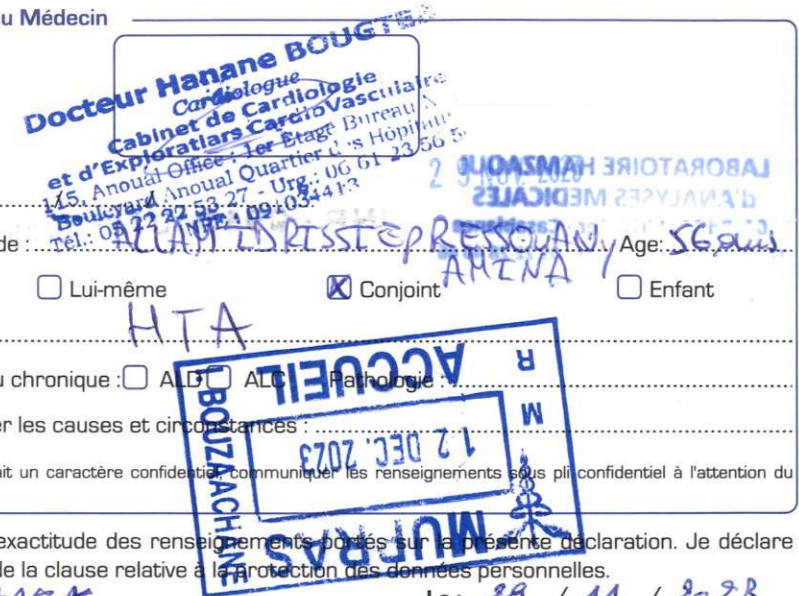 u Médecin
Docteur Hanane
Cardiologue
Cabinet de Cardiologie
et d'Exploratiars CardioVasculaire
115, Anoual Office : 1er Etage Bureau
Boulevard Anoual Quartier
Tél.: 05 22 22 53 27 - Urg.: 06 61 23 56 5
LABORATOIRE HAMZAOUI
d'ANALYSES MEDICALES
de : ALLAM IDRISSI AMINA Age: 56 ans
Lui-même X Conjoint Enfant
HTA
u chronique : ALD ALC Pathologie :
er les causes et circonstances :
ait un caractère confidentiel, communiquer les renseignements sous pli confidentiel à l'attention du
M R
ACCUEIL
12 DEC. 2023
MUPRAS
I.BOUZAACHENE
exactitude des renseignements portés sur la présente déclaration. Je déclare
de la clause relative à la protection des données personnelles.
Le : 29 / 11 / 2023